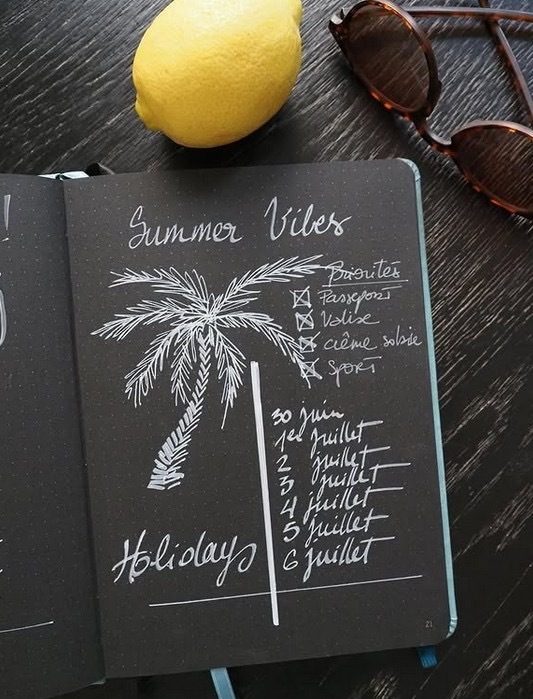 Summer Vibes
Priorités
Passeport
Valise
crème solaire
Sport
30 juin
1er juillet
2 juillet
3 juillet
4 juillet
5 juillet
6 juillet
Holidays
21